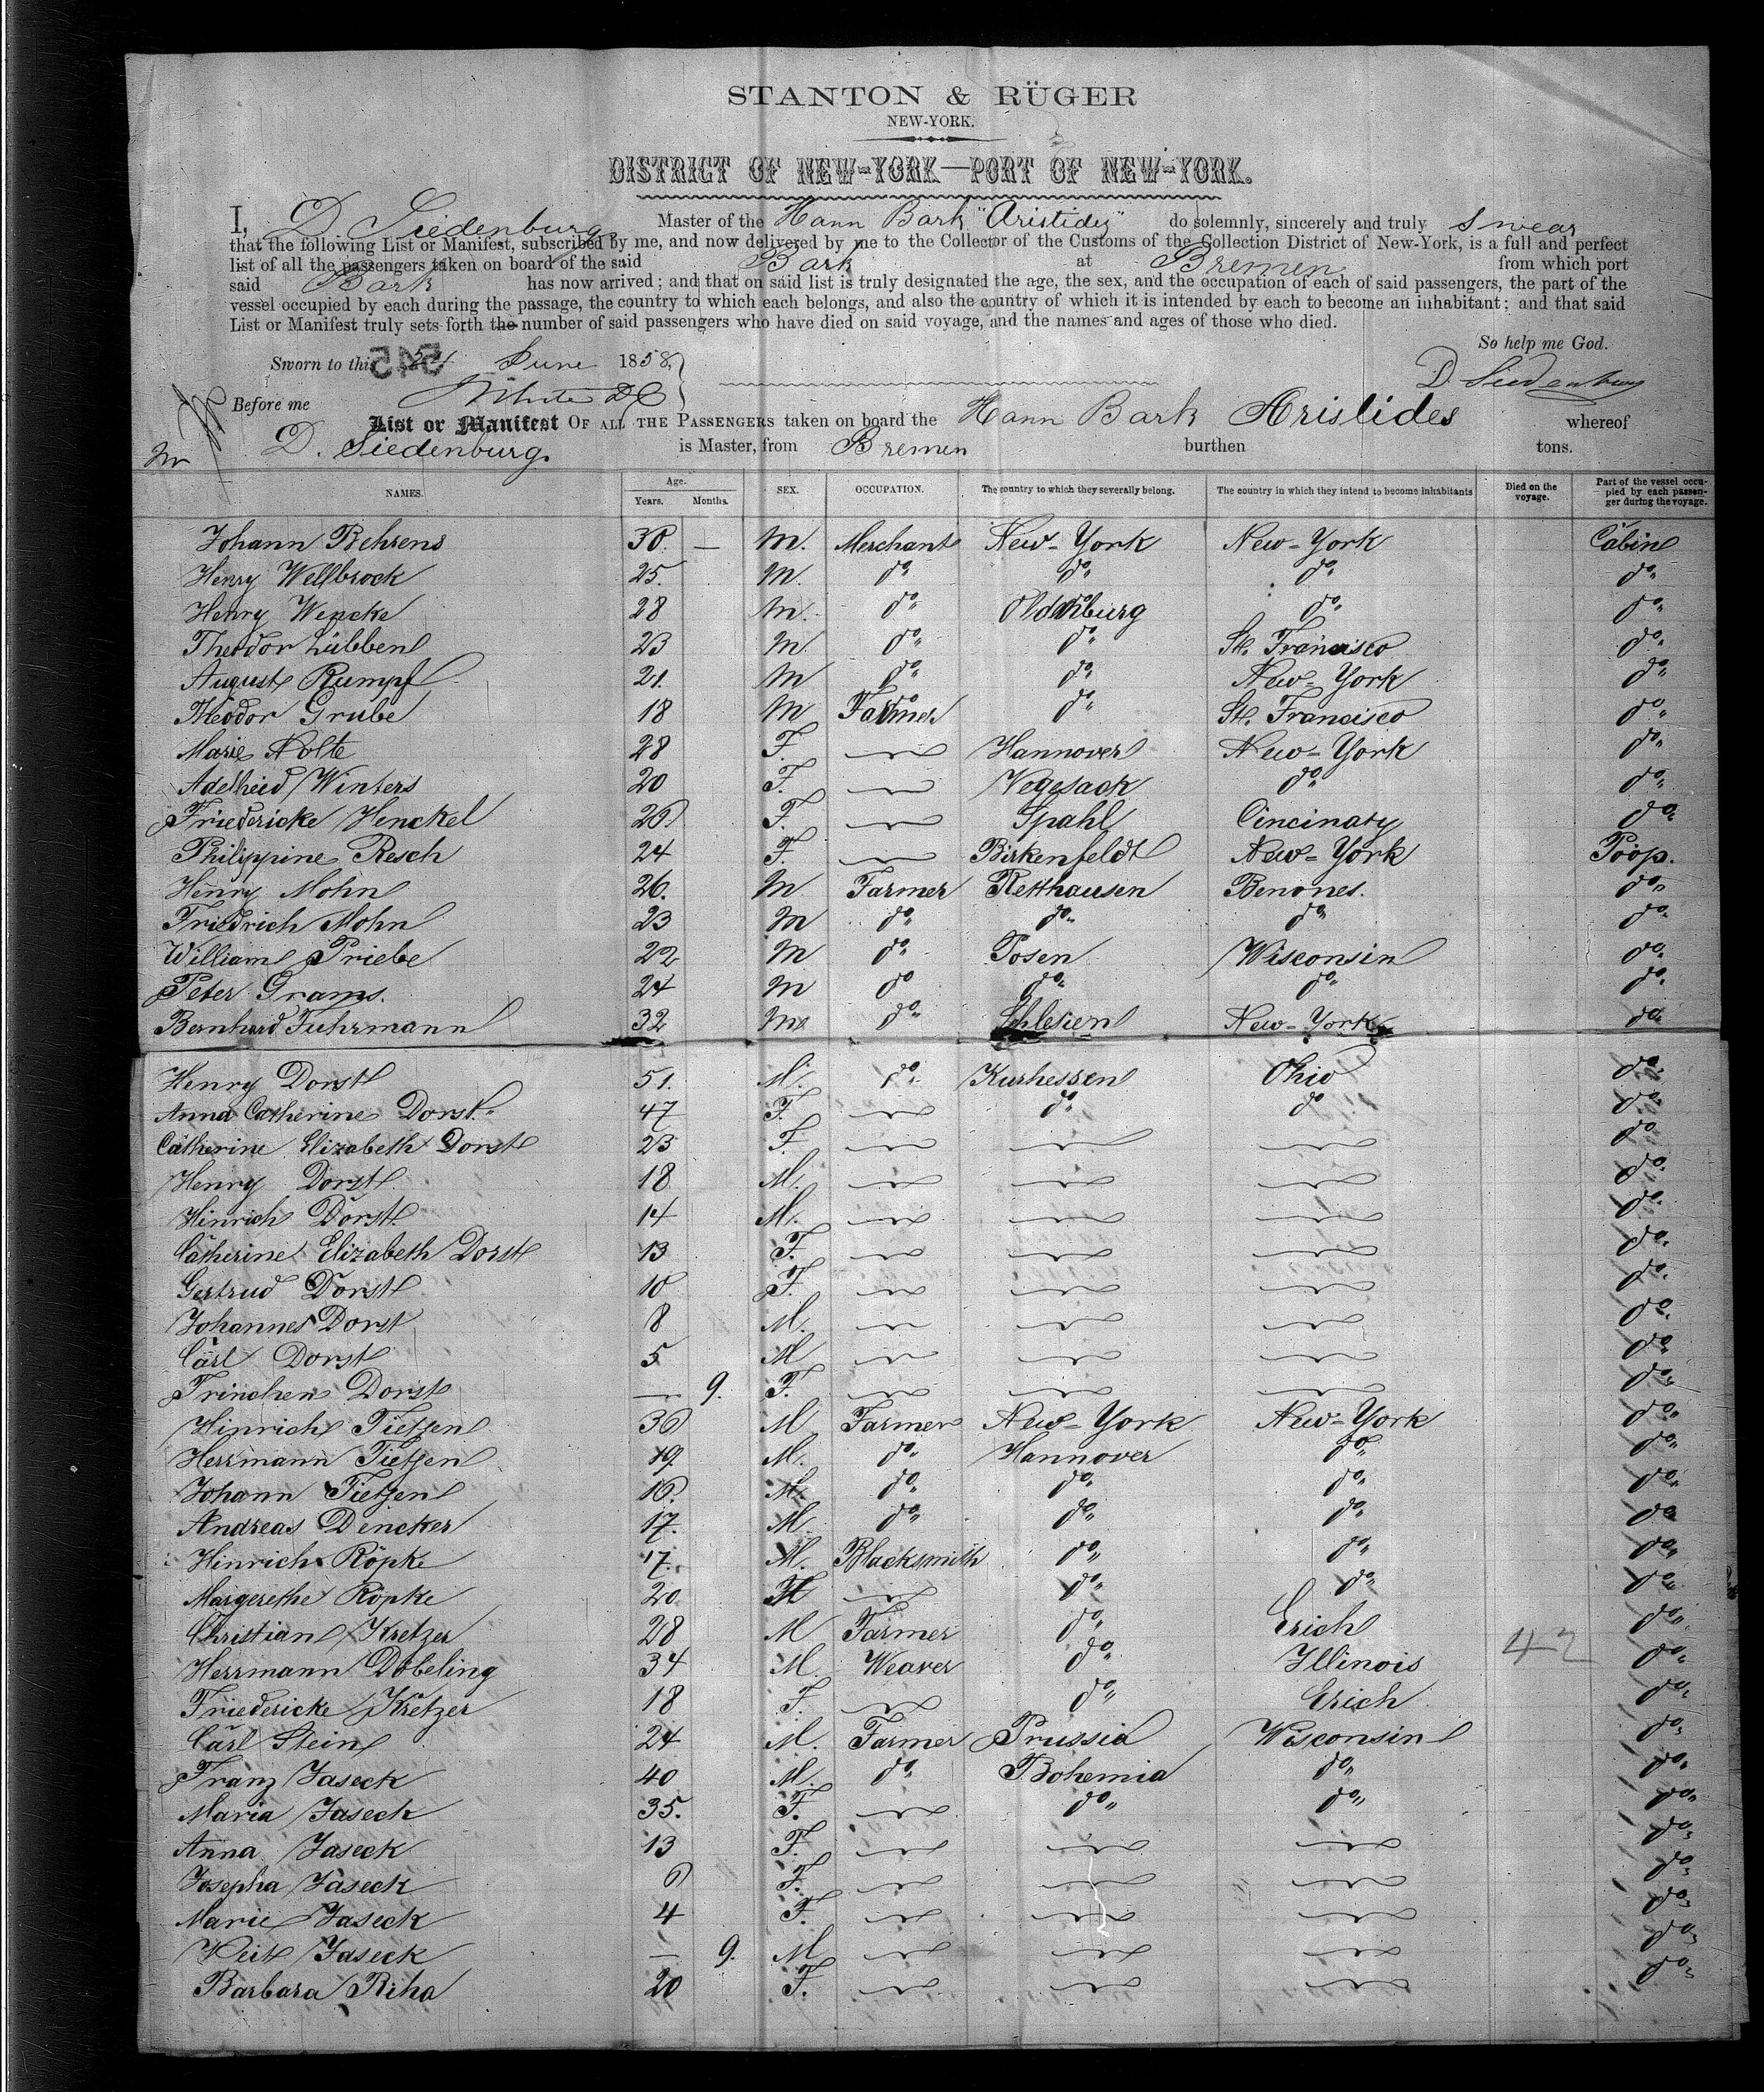 STANTON & RÜGER
NEW-YORK.
DISTRICT OF NEW-YORK—PORT OF NEW-YORK.
I, D. Siedenburg Master of the Hann Bark "Aristides" do solemnly, sincerely and truly swear
that the following List or Manifest, subscribed by me, and now delivered by me to the Collector of the Customs of the Collection District of New-York, is a full and perfect
list of all the passengers taken on board of the said Bark at Bremen from which port
said Bark has now arrived; and that on said list is truly designated the age, the sex, and the occupation of each of said passengers, the part of the
vessel occupied by each during the passage, the country to which each belongs, and also the country of which it is intended by each to become an inhabitant; and that said
List or Manifest truly sets forth the number of said passengers who have died on said voyage, and the names and ages of those who died.
So help me God.
Sworn to this June 1858, D. Siedenburg
545
Before me
List or Manifest OF ALL THE PASSENGERS taken on board the Hann Bark Aristides whereof
D. Siedenburg is Master, from Bremen burthen tons.
NAMES. Age. Years. Months. SEX. OCCUPATION. The country to which they severally belong. The country in which they intend to become inhabitants Died on the voyage. Part of the vessel occupied by each passenger during the voyage.
Johann Behrens 30. — M. Merchant New-York New-York Cabin
Henry Wellbrock 25. M. do do do
Henry Wencke 28 M. do Oldenburg do do
Theodor Lübben 23 M. do do St. Francisco do
August Rumpf 21. M do do New-York do
Theodor Grube 18 M Farmer do St. Francisco do
Marie Nolte 28 F. — Hannover New-York do
Adelheid Winters 20 F. — Vegesack do do
Friedericke Henckel 26 F. — Spahl Cincinaty do
Philippine Resch 24 F. — Birkenfeldt New-York Poop.
Henry Mohn 26. M Farmer Retthausen Benones. do
Friedrich Mohn 23 M do do do do
William Priebe 22 M do Posen Wisconsin do
Peter Grams. 24 M do do do do
Bernhard Fuhrmann 32 M do Schlesien New-York do
Henry Dorst 51. M. do Kurhessen Ohio do
Anna Catherine Dorst 47 F. — do do do
Catherine Elizabeth Dorst 23 F. — — — do
Henry Dorst 18 M. — — — do
Hinrich Dorst 14 M. — — — do
Catherine Elizabeth Dorst 13 F. — — — do
Gertrud Dorst 10 F. — — — do
Johannes Dorst 8 M. — — — do
Carl Dorst 5 M — — — do
Trinchen Dorst — 9. F. — — — do
Hinrich Tietjen 36 M Farmer New-York New-York do
Herrmann Tietjen 19. M. do Hannover do do
Johann Tietjen 16. M. do do do do
Andreas Dencker 17. M. do do do do
Hinrich Röpke 17. M. Blacksmith do do do
Margerethe Röpke 20 — do do do
Christian Kretzer 28 M Farmer do Erich do
Herrmann Döbeling 34 M. Weaver do Illinois 42 do
Friedericke Kretzer 18 F. — do Erich do
Carl Stein 24 M. Farmer Prussia Wisconsin do
Franz Jaseck 40 M. do Bohemia do do
Maria Jaseck 35. F. — do do do
Anna Jaseck 13 F. — — — do
Josepha Jaseck 6 F. — — — do
Marie Jaseck 4 F. — — — do
Veit Jaseck — 9. M — — — do
Barbara Riha 20 F. — — — do